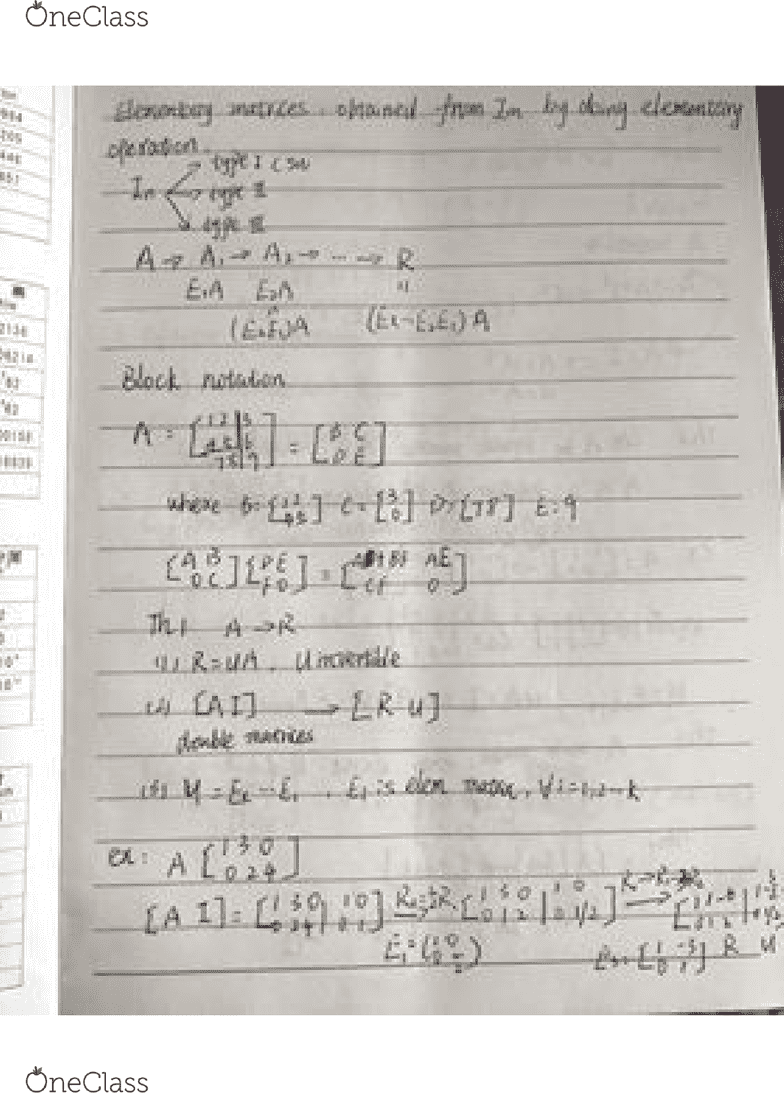 OneClass
Elementary matrices. obtained from In by doing elementary
operation.
In → type I
→ type II
→ type III
A → A₁ → A₂ → ... → R
E₁A E₂A "
(E₂E₁)A (Ek--E₂E₁)A
Block notation
A = [1 2 | 3; 4 5 | 6; 7 8 | 9] = [B C; D E]
where B=[1 2; 4 5] C=[3; 6] D=[7 8] E=9
[A B; 0 C][D E; F 0] = [AD+BF AE; CF 0]
Th 1 A → R
(1) R=UA. U invertible
(2) [A I] → [R U]
double matrices
(3) U = Ek --E₁, Ei is elem matrix, ∀i=1,2--k
ex: A [1 3 0; 0 2 4]
[A I] = [1 3 0 | 1 0; 0 2 4 | 0 1] → [1 3 0 | 1 0; 0 1 2 | 0 1/2] →
R U
OneClass